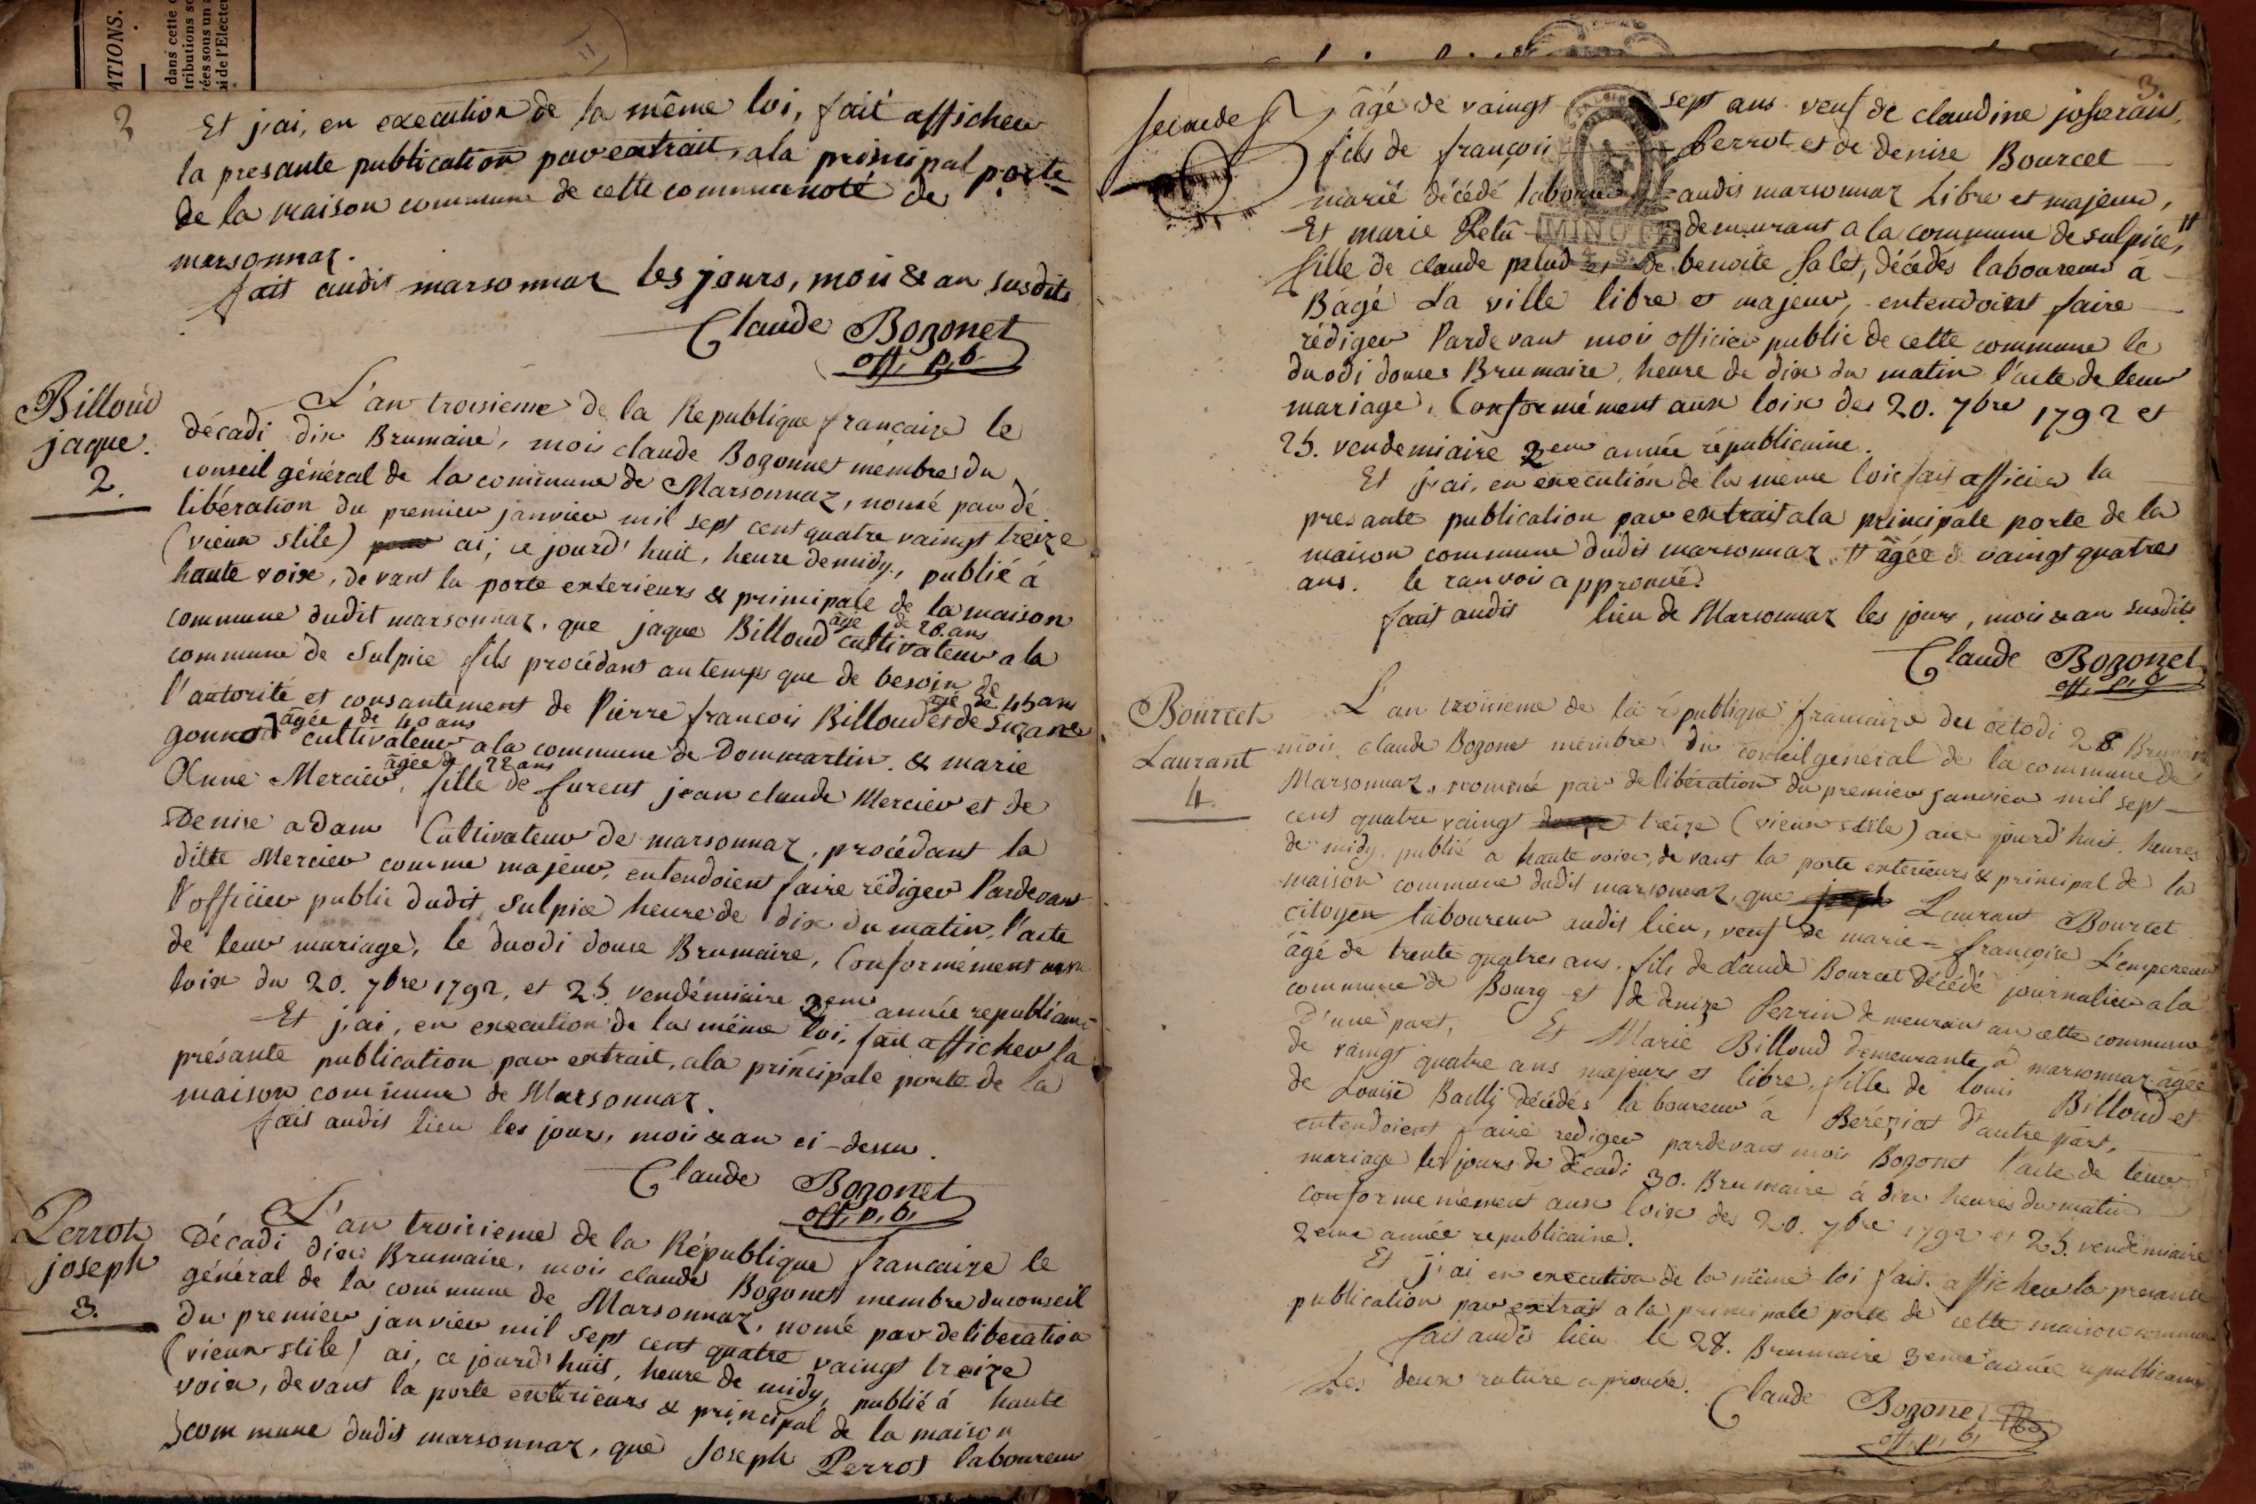 ATIONS.
dans cette
tributions
ées sous un
i de l'Elect
2
Et j'ai, en execution de la même loi, fait afficher
la presante publication par extrait, ala principal porte
de la maison commune de cette communoté de
marsonnaz.
fait audit marsonnaz les jours, mois & an susdits
Claude Bozonet
off. p. b.
Billoud
jaque.
2.
L'an troisieme de la Republique françaize le
décadi dix Brumaire, mois claude Bozonnet membre du
conseil général de la commune de Marsonnaz, nomé par dé
libération du premier janvier mil sept cent quatre vaingt treize
(vieux stile) ai, ce jourd'huit, heure de midy, publié à
haute voix, devant la porte exterieurs & principale de la maison
commune dudit marsonnaz, que jaque Billoud âgé de 28. ans cultivateur a la
commune de Sulpice fils procédant au temps que de besoin de
l'autorité et consantement de Pierre françois Billoud âgé de 45 ans et de Suzane
gonnod âgée de 40 ans cultivateur ala commune de Dommartin. & marie
Anne Mercier âgée de 22 ans, fille de furent jean claude Mercier et de
Denise adam Cultivateur de marsonnaz, procédant la
ditte Mercier comme majeur, entendoient faire rédiger Pardevant
l'officier public dudit Sulpice heure de dix du matin, l'acte
de leur mariage, le duodi douse Brumaire, Conformément aux
loix du 20. 7bre 1792, et 25. vendémiaire 2em année republicaine
Et j'ai, en execution de la même loi, fait afficher la
présante publication par extrait, ala principale porte de la
maison commune de Marsonnaz.
fait audit lieu les jours, mois & an ci-dessu.
Claude Bozonet
off. p. b.
Perrot
joseph
3.
L'an troisieme de la République françaize le
Décadi dix Brumaire, mois claude Bozonet membre du conseil
général de la commune de Marsonnaz, nomé par deliberation
du premier janvier mil sept cent quatre vaingt treize
(vieux stile) ai, ce jourd'huit, heure de midy, publié à haute
voix, devant la porte exterieurs & principal de la maison
commune dudit marsonnaz, que Joseph Perrot laboureur
3.
âgé de vaingt sept ans veuf de claudine joserand,
fils de françois Perrot et de denise Bourcet
marié décédé laboureur audit marsonnaz Libre et majeur,
MINUTE
Et marie Pelu demeurant a la commune de sulpice,
fille de claude palud et de benoite Salet, décédés laboureur à
Bagé La ville libre et majeur, entendoient faire
rédiger Pardevant mois officier public de cette commune le
duodi douse Brumaire, heure de dix du matin l'acte de leur
mariage, Conformément aux loix des 20. 7bre 1792 et
25. vendemiaire 2em année républicaine.
Et j'ai, en execution de la même loix fait afficier la
presante publication par extrait ala principale porte de la
maison commune dudit marsonnaz # âgée de vaingt quatres
ans. le ranvois approuvé.
fait audit lieu de Marsonnaz les jours, mois & an susdits
Claude Bozonet
off. p. b.
Bourcet
Laurant
4.
L'an troisieme de la république françaize du octodi 28 Brumaire
mois claude Bozonet membre du conseil général de la commune de
Marsonnaz, nommé par deliberation du premier janvier mil sept
cent quatre vaingt treize (vieux stile) ai ce jourd'huit, heures
de midy, publié a haute voix, devant la porte exterieurs & principal de la
maison commune dudit marsonnaz, que Laurant Bourcet
citoyen laboureur audit lieu, veuf de marie-françoise L'empereur
âgé de trente quatres ans, fils de claude Bourcet décédé journalier a la
commune de Bourg et de denize Perrin demeurant au cette commune
D'une part, Et Marie Billoud demeurante à marsonnaz âgée
de vaingt quatre ans majeurs et libre, fille de louis Billoud et
de Louise Bailly décédés laboureur à Beréziat d'autre part,
entendoient faire rediger pardevant mois Bozonet l'acte de leur
mariage les jours de décadi 30. Brumaire à dix heures du matin
conformement aux loix des 20. 7bre 1792 et 25. vendémiaire
2eme année republicaine.
Et j'ai en execution de la même loi fait afficher la presante
publication par extrait a la principale porte de cette maison commune
fait audit lieu le 28. Brumaire 3eme année republicaine
Les deux rature aprouvée.
Claude Bozonet
off. p. b.